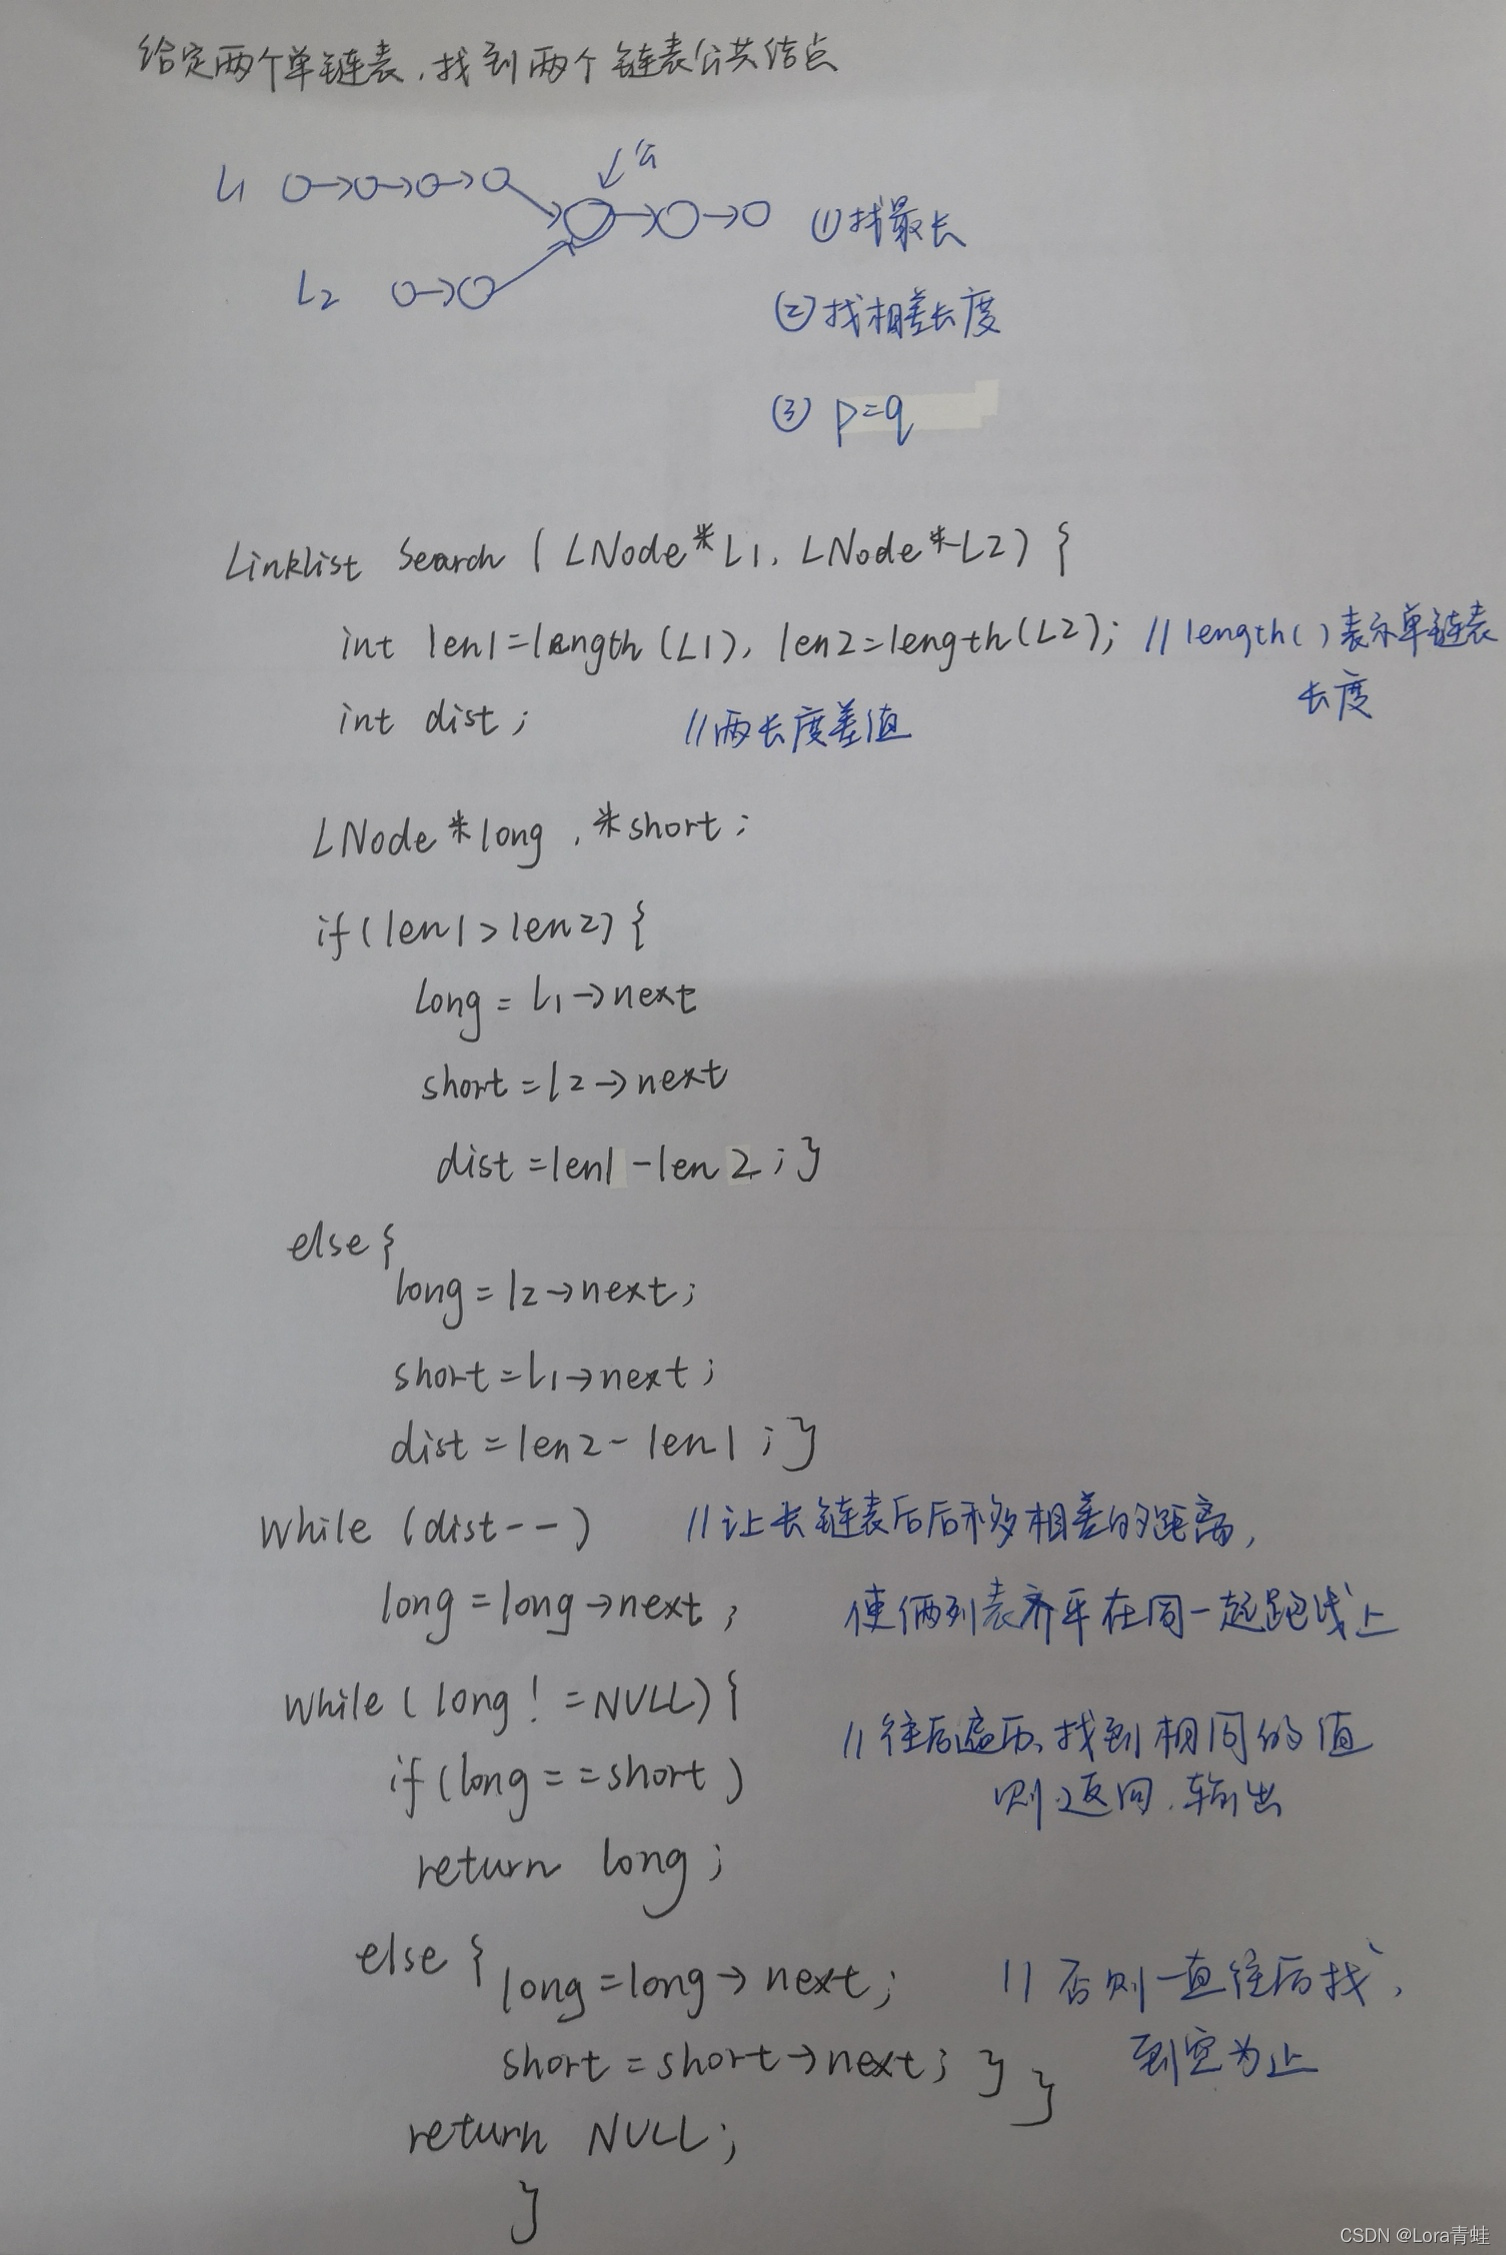 给定两个单链表,找到两个链表公共结点
L1
公
①找最长
L2
②找相差长度
③ p=q
Linklist Search (LNode*L1, LNode*L2) {
int len1=length(L1), len2=length(L2); //length()表示单链表
长度
int dist; //两长度差值
LNode *long, *short;
if(len1>len2){
long = L1->next
short = l2->next
dist =len1-len2;}
else{
long = l2->next;
short=L1->next;
dist = len2-len1;}
while (dist--) //让长链表后后移相差的距离,
long = long->next; 使俩列表齐平在同一起跑线上
while (long! =NULL){ //往后遍历,找到相同的值
if(long = =short) 则返回,输出
return long;
else { long =long-> next; //否则一直往后找,
short = short->next; } } 到空为止
return NULL;
}
CSDN @Lora青蛙